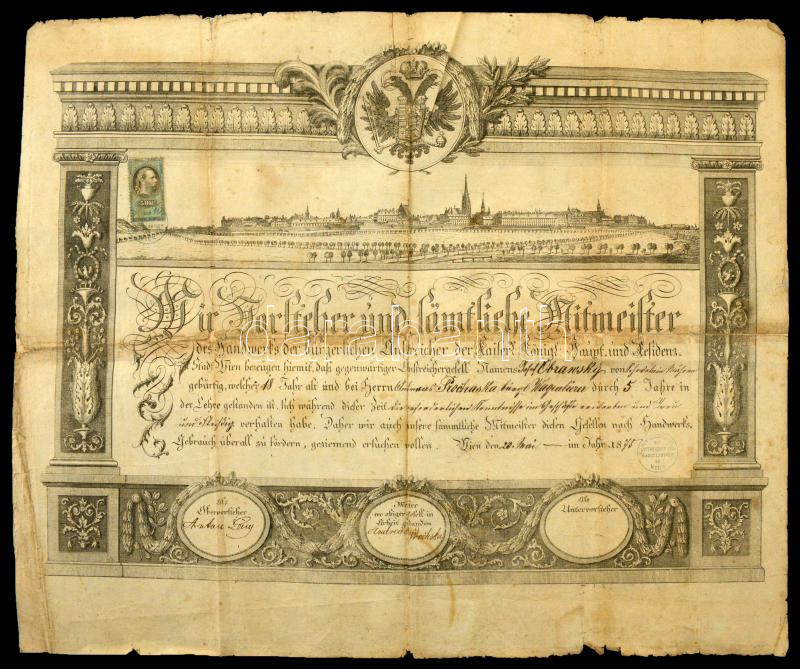 50 KR
Wir Vorsteher und sämtliche Mitmeister
des Handwerks der bürgerlichen Anstreicher der Kaiserl. Königl. Haupt, und Residenz
Stadt Wien bezeugen hiemit, daß gegenwärtiger Anstreichergesell Namens Josef Obransky von
gebürtig, welcher 18 Jahr alt und bei Herrn Prochaska bürgl durch 5 Jahre in
der Lehre gestanden ist, sich während dieser Zeit die erforderlichen Kenntnisse und treu
und fleißig verhalten habe. Daher wir auch unsere sämmtliche Mitmeister diesen Gesellen nach Handwerks
Gebrauch überall zu fördern, geziemend ersuchen wollen. Wien den 22 Mai im Jahr 1875
darabanth
WIEN
Als
Obervorsteher
Anton
Meister
wo obiger Gesell in
Arbeit gstanden
Prochaska
Als
Untervorsteher